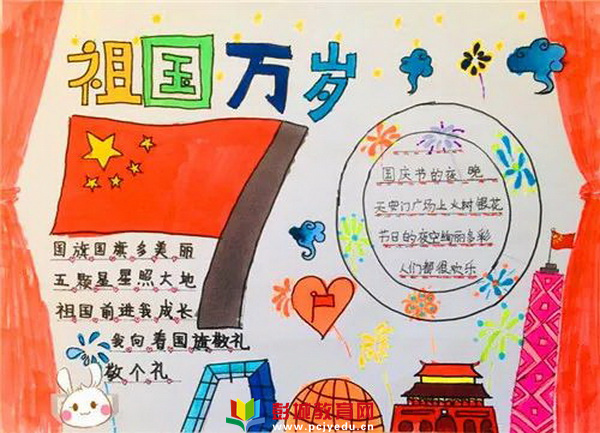 祖国万岁
70
国旗国旗多美丽
五颗星星照大地
祖国前进我成长
我向着国旗敬礼
敬个礼
国庆节的夜晚
天安门广场上火树银花
节日的夜空绚丽多彩
人们都很欢乐
彭城教育网
www.pcjyedu.cn